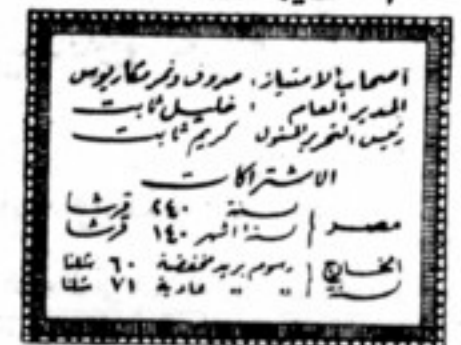 أصحاب الامتياز، صروف ونمر مكاريوس
المدير العام : خليل ثابت
رئيس التحرير المسئول كريم ثابت
الاشتراكات
مصر { سنة ٢٤٠ قرشا
ستة أشهر ١٤٠ قرشا
الخارج { رسوم بريد مخفضة ٦٠ شلنا
سنة " " عادية ٧١ شلنا